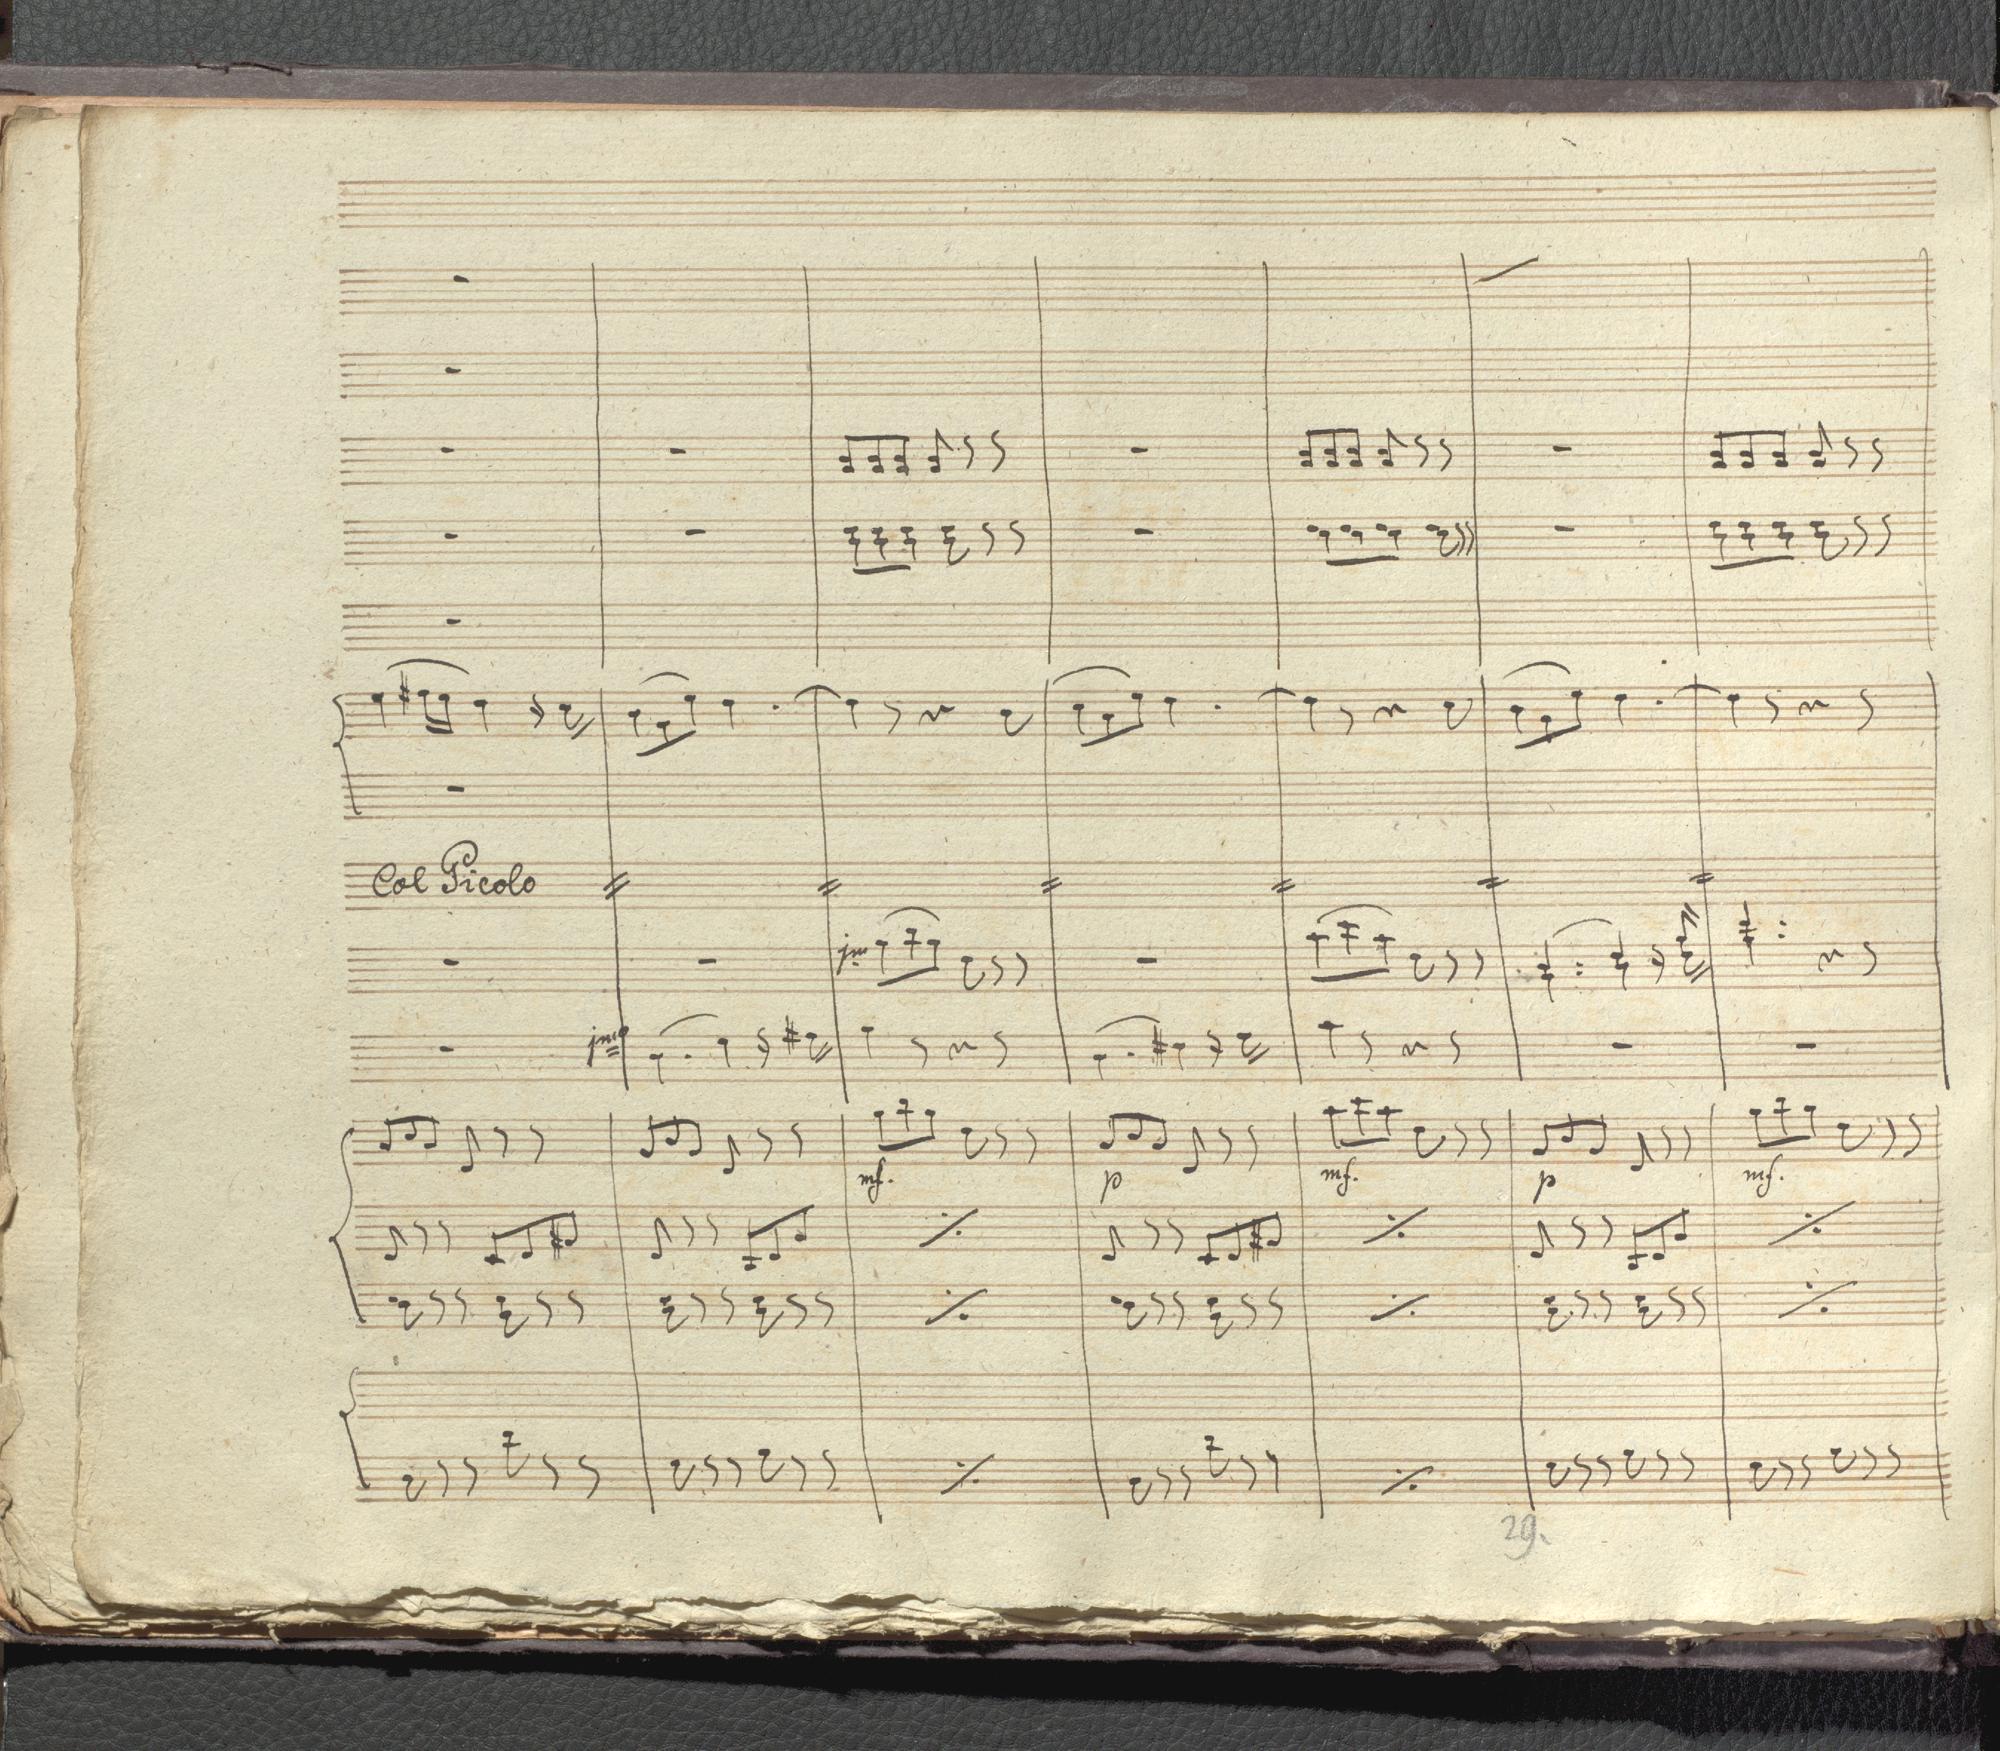 Col Picolo
jmo
jmo
mf.
p
mf.
p
mf.
29.